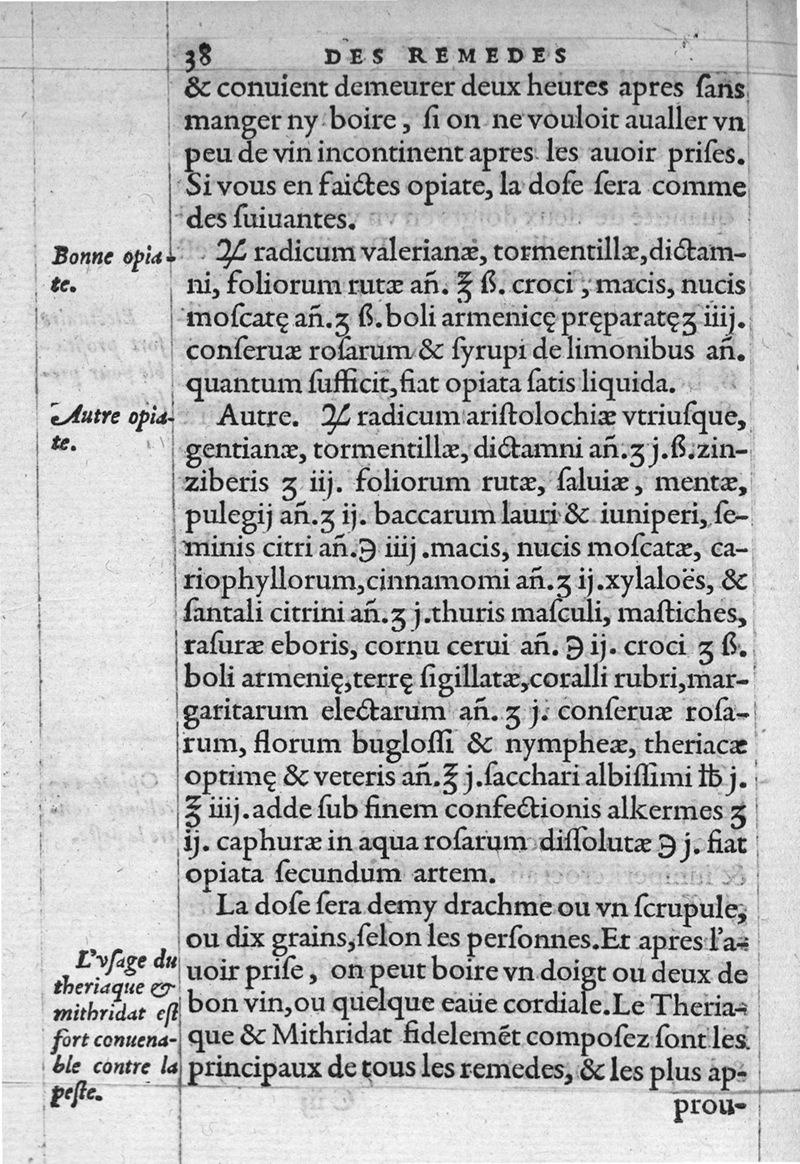 38 DES REMEDES
& conuient demeurer deux heures apres ſans
manger ny boire, ſi on ne vouloit aualler vn
peu de vin incontinent apres les auoir priſes.
Si vous en faictes opiate, la doſe ſera comme
des ſuiuantes.
Bonne opia-
te.
℞ radicum valerianæ, tormentillæ, dictam-
ni, foliorum rutæ añ. ℥ ß. croci, macis, nucis
moſcatę añ. ʒ ß. boli armenicę pręparatę ʒ iiij.
conſeruæ roſarum & ſyrupi de limonibus añ.
quantum ſufficit, fiat opiata ſatis liquida.
Autre opia-
te.
Autre. ℞ radicum ariſtolochiæ vtriuſque,
gentianæ, tormentillæ, dictamni añ. ʒ j. ß. zin-
ziberis ʒ iij. foliorum rutæ, ſaluiæ, mentæ,
pulegij añ. ʒ ij. baccarum lauri & iuniperi, ſe-
minis citri añ. ℈ iiij. macis, nucis moſcatæ, ca-
riophyllorum, cinnamomi añ. ʒ ij. xylaloës, &
ſantali citrini añ. ʒ j. thuris maſculi, maſtiches,
raſuræ eboris, cornu cerui añ. ℈ ij. croci ʒ ß.
boli armenię, terrę ſigillatæ, coralli rubri, mar-
garitarum electarum añ. ʒ j. conſeruæ roſa-
rum, florum bugloſſi & nympheæ, theriacæ
optimę & veteris añ. ℥ j. ſacchari albiſſimi ℔ j.
℥ iiij. adde ſub finem confectionis alkermes ʒ
ij. caphuræ in aqua roſarum diſſolutæ ℈ j. fiat
opiata ſecundum artem.
La doſe ſera demy drachme ou vn ſcrupule,
ou dix grains, ſelon les perſonnes. Et apres l'a-
uoir priſe, on peut boire vn doigt ou deux de
bon vin, ou quelque eaüe cordiale. Le Theria-
que & Mithridat fidelemẽt compoſez ſont les
principaux de tous les remedes, & les plus ap-
L'vſage du
theriaque &
mithridat eſt
fort conuena-
ble contre la
peſte.
prou-